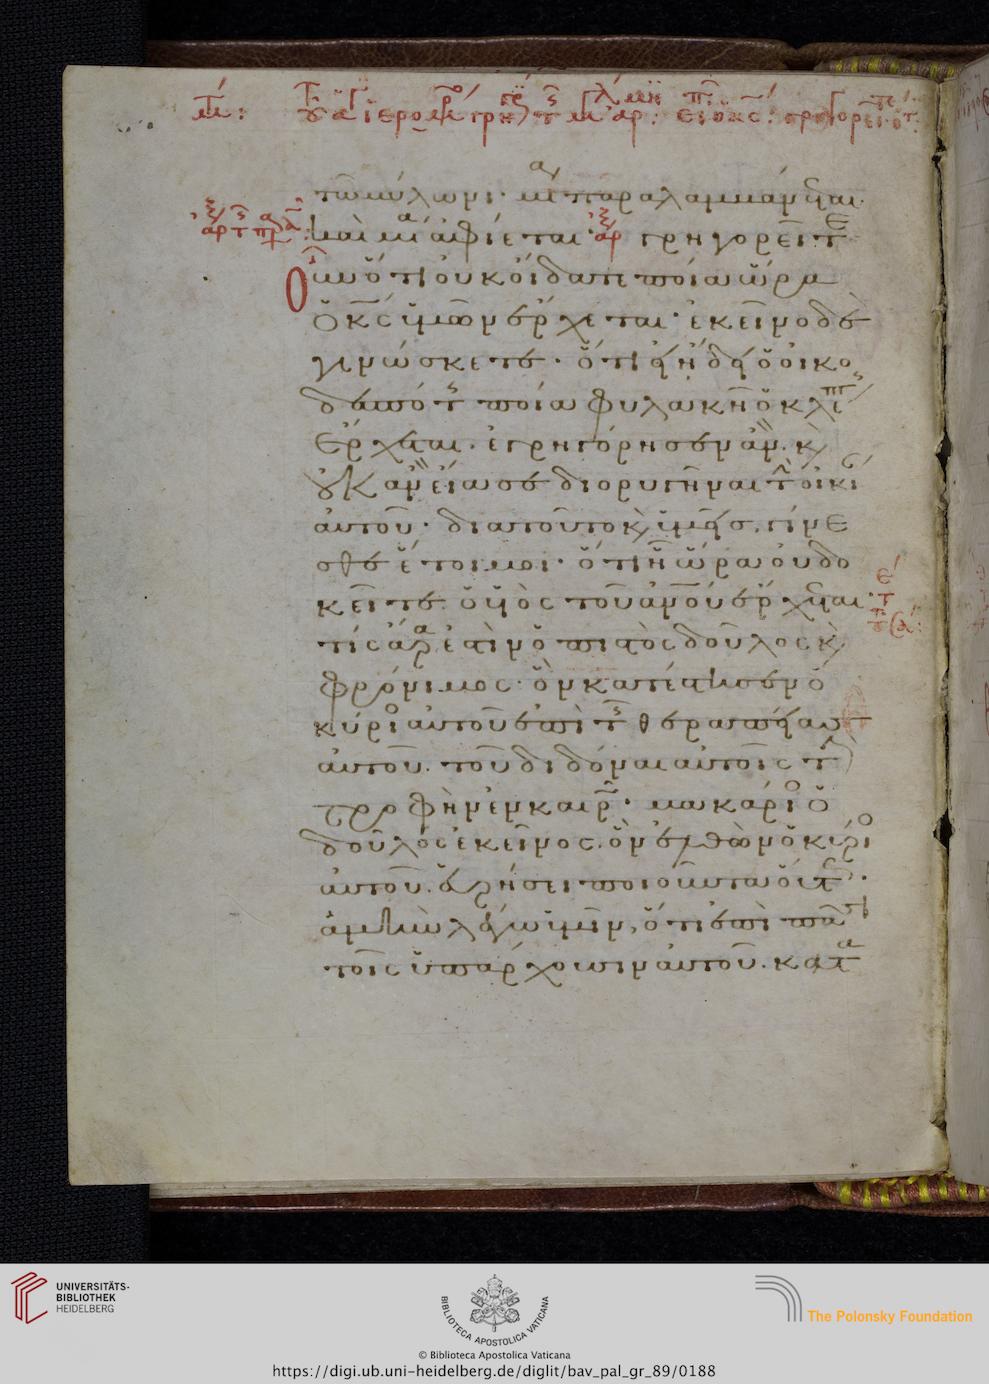 τῶ μύλωνι· μία παραλαμβάνεται
καὶ μία ἀφίεται· ἀρχ γρηγορεῖτε
οὖν ὅτι οὐκ οἴδατε ποία ὥρα
ὁ κς ὑμῶν ἔρχεται· ἐκεῖνο δὲ
γινώσκετε· ὅτι εἰ ἤδει ὁ οἰκο
δεσπότης ποία φυλακῆ ὁ κλέπτης
ἔρχεται· ἐγρηγόρησεν ἄν· κ
οὐκ ἂν εἴασε διορυγῆναι τὴν οἰκίαν
αὐτοῦ· διατοῦτο κ ὑμεῖς γίνε
σθε ἕτοιμοι· ὅτι ἧ ὥρα οὐ δο
κεῖτε ὁ υἱὸς τοῦ ἀνου ἔρχεται·
τίς ἄρα ἐστὶν ὁ πιστὸς δοῦλος κ
φρόνιμος· ὃν κατέστησεν ὁ
κύριος αὐτοῦ ἐπὶ τῆς θεραπείας
αὐτοῦ· τοῦ διδόναι αὐτοῖς τὴν
τροφὴν ἐν καιρῶ· μακάριος ὁ
δοῦλος ἐκεῖνος· ὃν ἐλθὼν ὁ κύριος
αὐτοῦ· εὑρήσει ποιοῦντα οὕτως·
ἀμὴν λέγω ὑμῖν, ὅτι ἐπὶ πᾶσι
τοῖς ὑπάρχουσιν αὐτοῦ· κατα
UNIVERSITÄTS-
BIBLIOTHEK
HEIDELBERG
BIBLIOTECA APOSTOLICA VATICANA
The Polonsky Foundation
© Biblioteca Apostolica Vaticana
https://digi.ub.uni-heidelberg.de/diglit/bav_pal_gr_89/0188